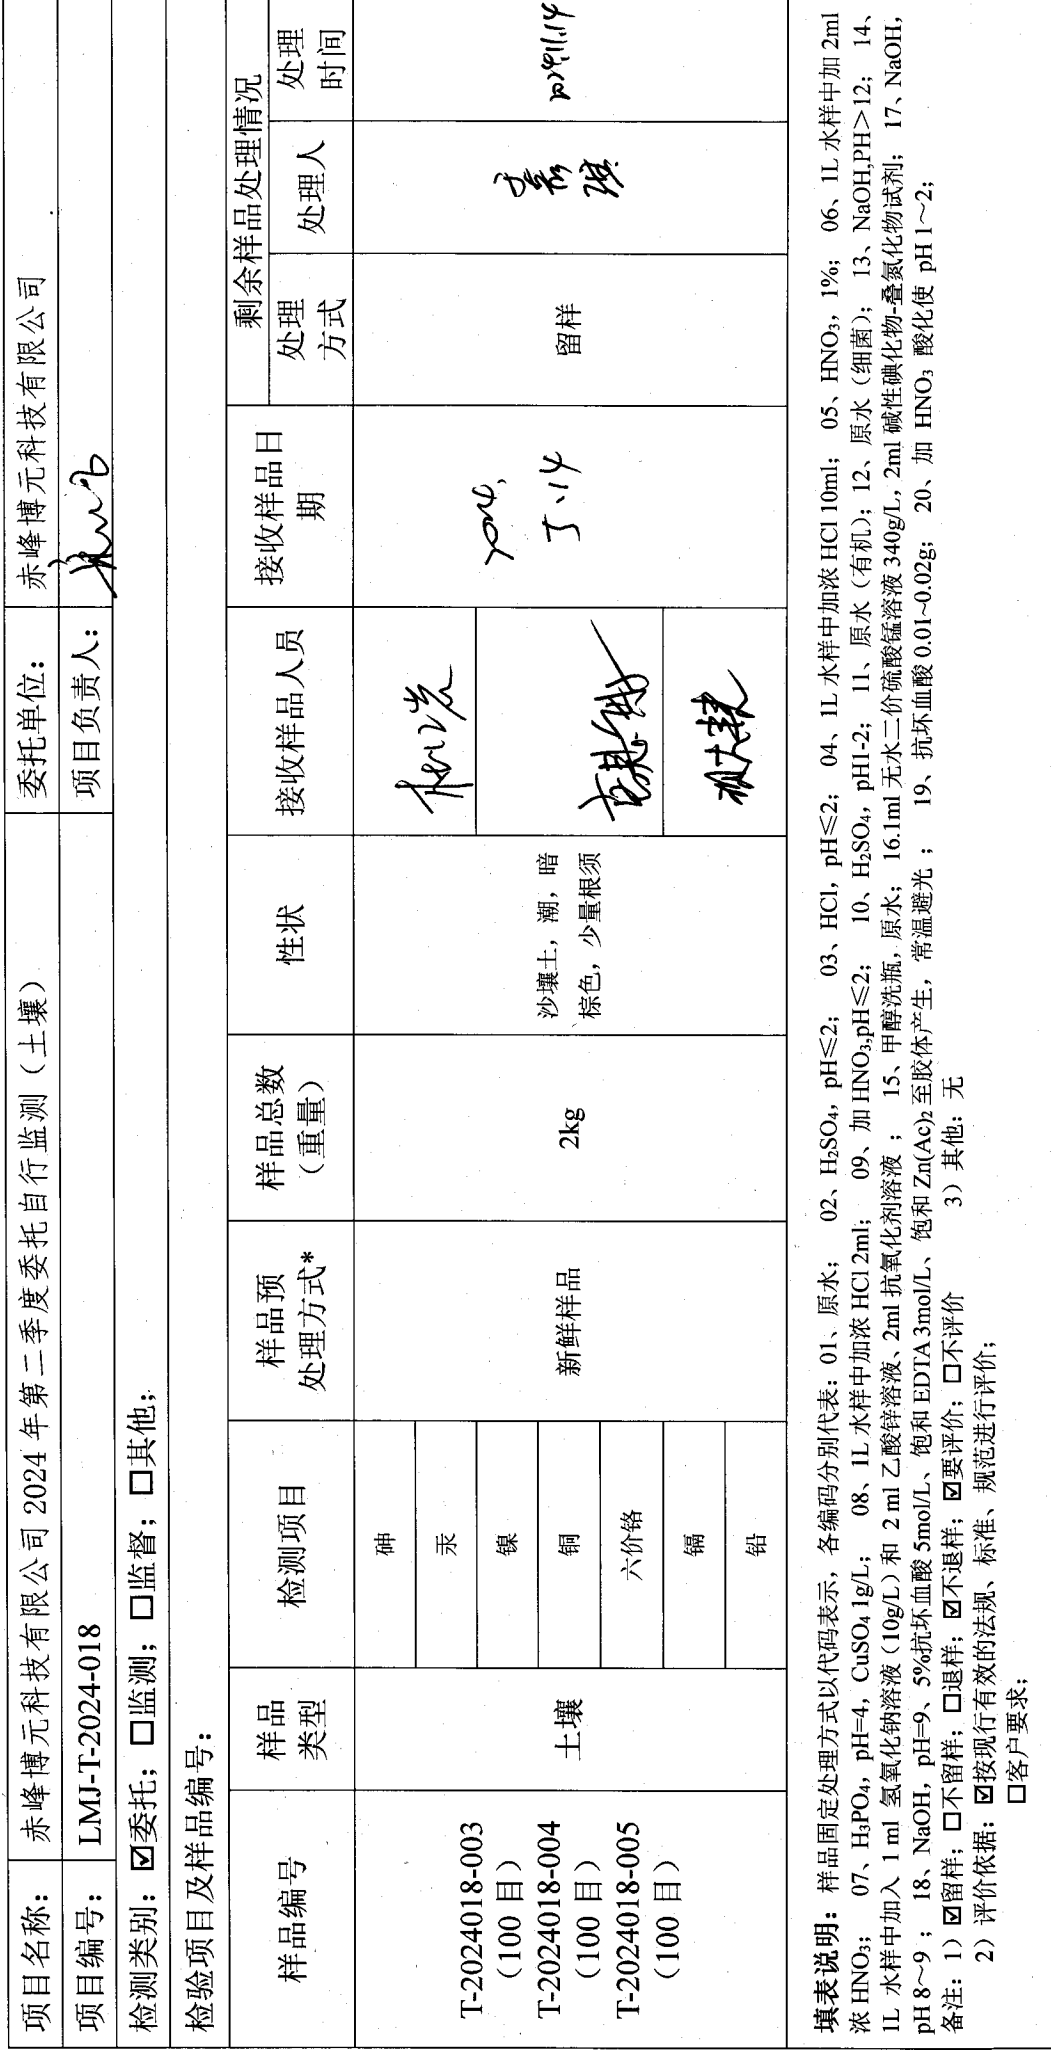 项目名称： 赤峰博元科技有限公司 2024 年第二季度委托自行监测（土壤） 委托单位： 赤峰博元科技有限公司
项目编号： LMJ-T-2024-018 项目负责人：
检测类别：☑委托；☐监测；☐监督；☐其他；
检验项目及样品编号：
样品编号 样品类型 检测项目 样品预处理方式* 样品总数（重量） 性状 接收样品人员 接收样品日期 剩余样品处理情况
处理方式 处理人 处理时间
T-2024018-003
（100 目）
T-2024018-004
（100 目）
T-2024018-005
（100 目）
土壤
砷
汞
镍
铜
六价铬
镉
铅
新鲜样品
2kg
沙壤土，潮，暗
棕色，少量根须
2024.
5.14
留样
填表说明：样品固定处理方式以代码表示，各编码分别代表：01、原水； 02、H₂SO₄，pH≤2； 03、HCl，pH≤2； 04、1L 水样中加浓 HCl 10ml； 05、HNO₃，1%； 06、1L 水样中加 2ml
浓 HNO₃； 07、H₃PO₄，pH=4，CuSO₄ 1g/L； 08、1L 水样中加浓 HCl 2ml； 09、加 HNO₃,pH≤2； 10、H₂SO₄，pH1-2； 11、原水（有机）；12、原水（细菌）；13、NaOH,PH＞12； 14、
1L 水样中加入 1 ml 氢氧化钠溶液（10g/L）和 2 ml 乙酸锌溶液、2ml 抗氧化剂溶液 ； 15、甲醇洗瓶，原水； 16.1ml 无水二价硫酸锰溶液 340g/L，2ml 碱性碘化物-叠氮化物试剂； 17、NaOH，
pH 8～9 ； 18、NaOH，pH=9、5%抗坏血酸 5mol/L、饱和 EDTA 3mol/L、饱和 Zn(Ac)₂ 至胶体产生，常温避光 ； 19、抗坏血酸 0.01~0.02g； 20、加 HNO₃ 酸化使 pH 1～2；
备注：1）☑留样；☐不留样；☐退样；☑不退样；☑要评价；☐不评价 3）其他：无
2）评价依据；☑按现行有效的法规、标准、规范进行评价；
☐客户要求；